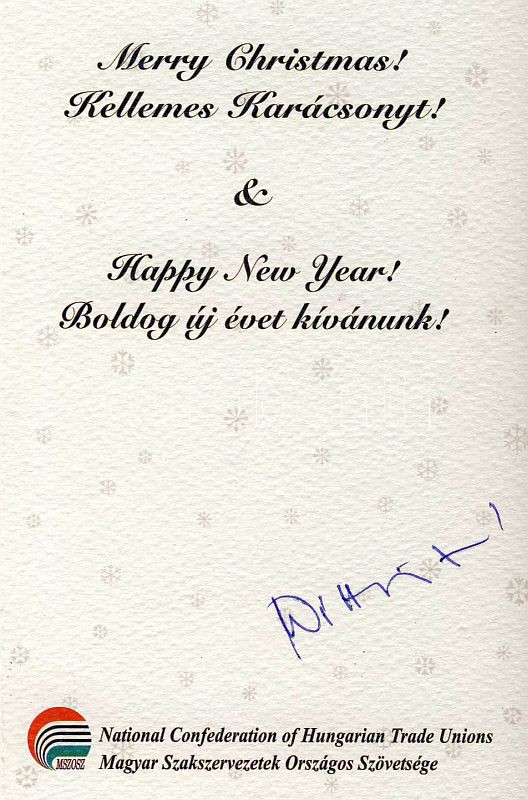 Merry Christmas!
Kellemes Karácsonyt!
&
Happy New Year!
Boldog új évet kívánunk!
MSZOSZ
National Confederation of Hungarian Trade Unions
Magyar Szakszervezetek Országos Szövetsége